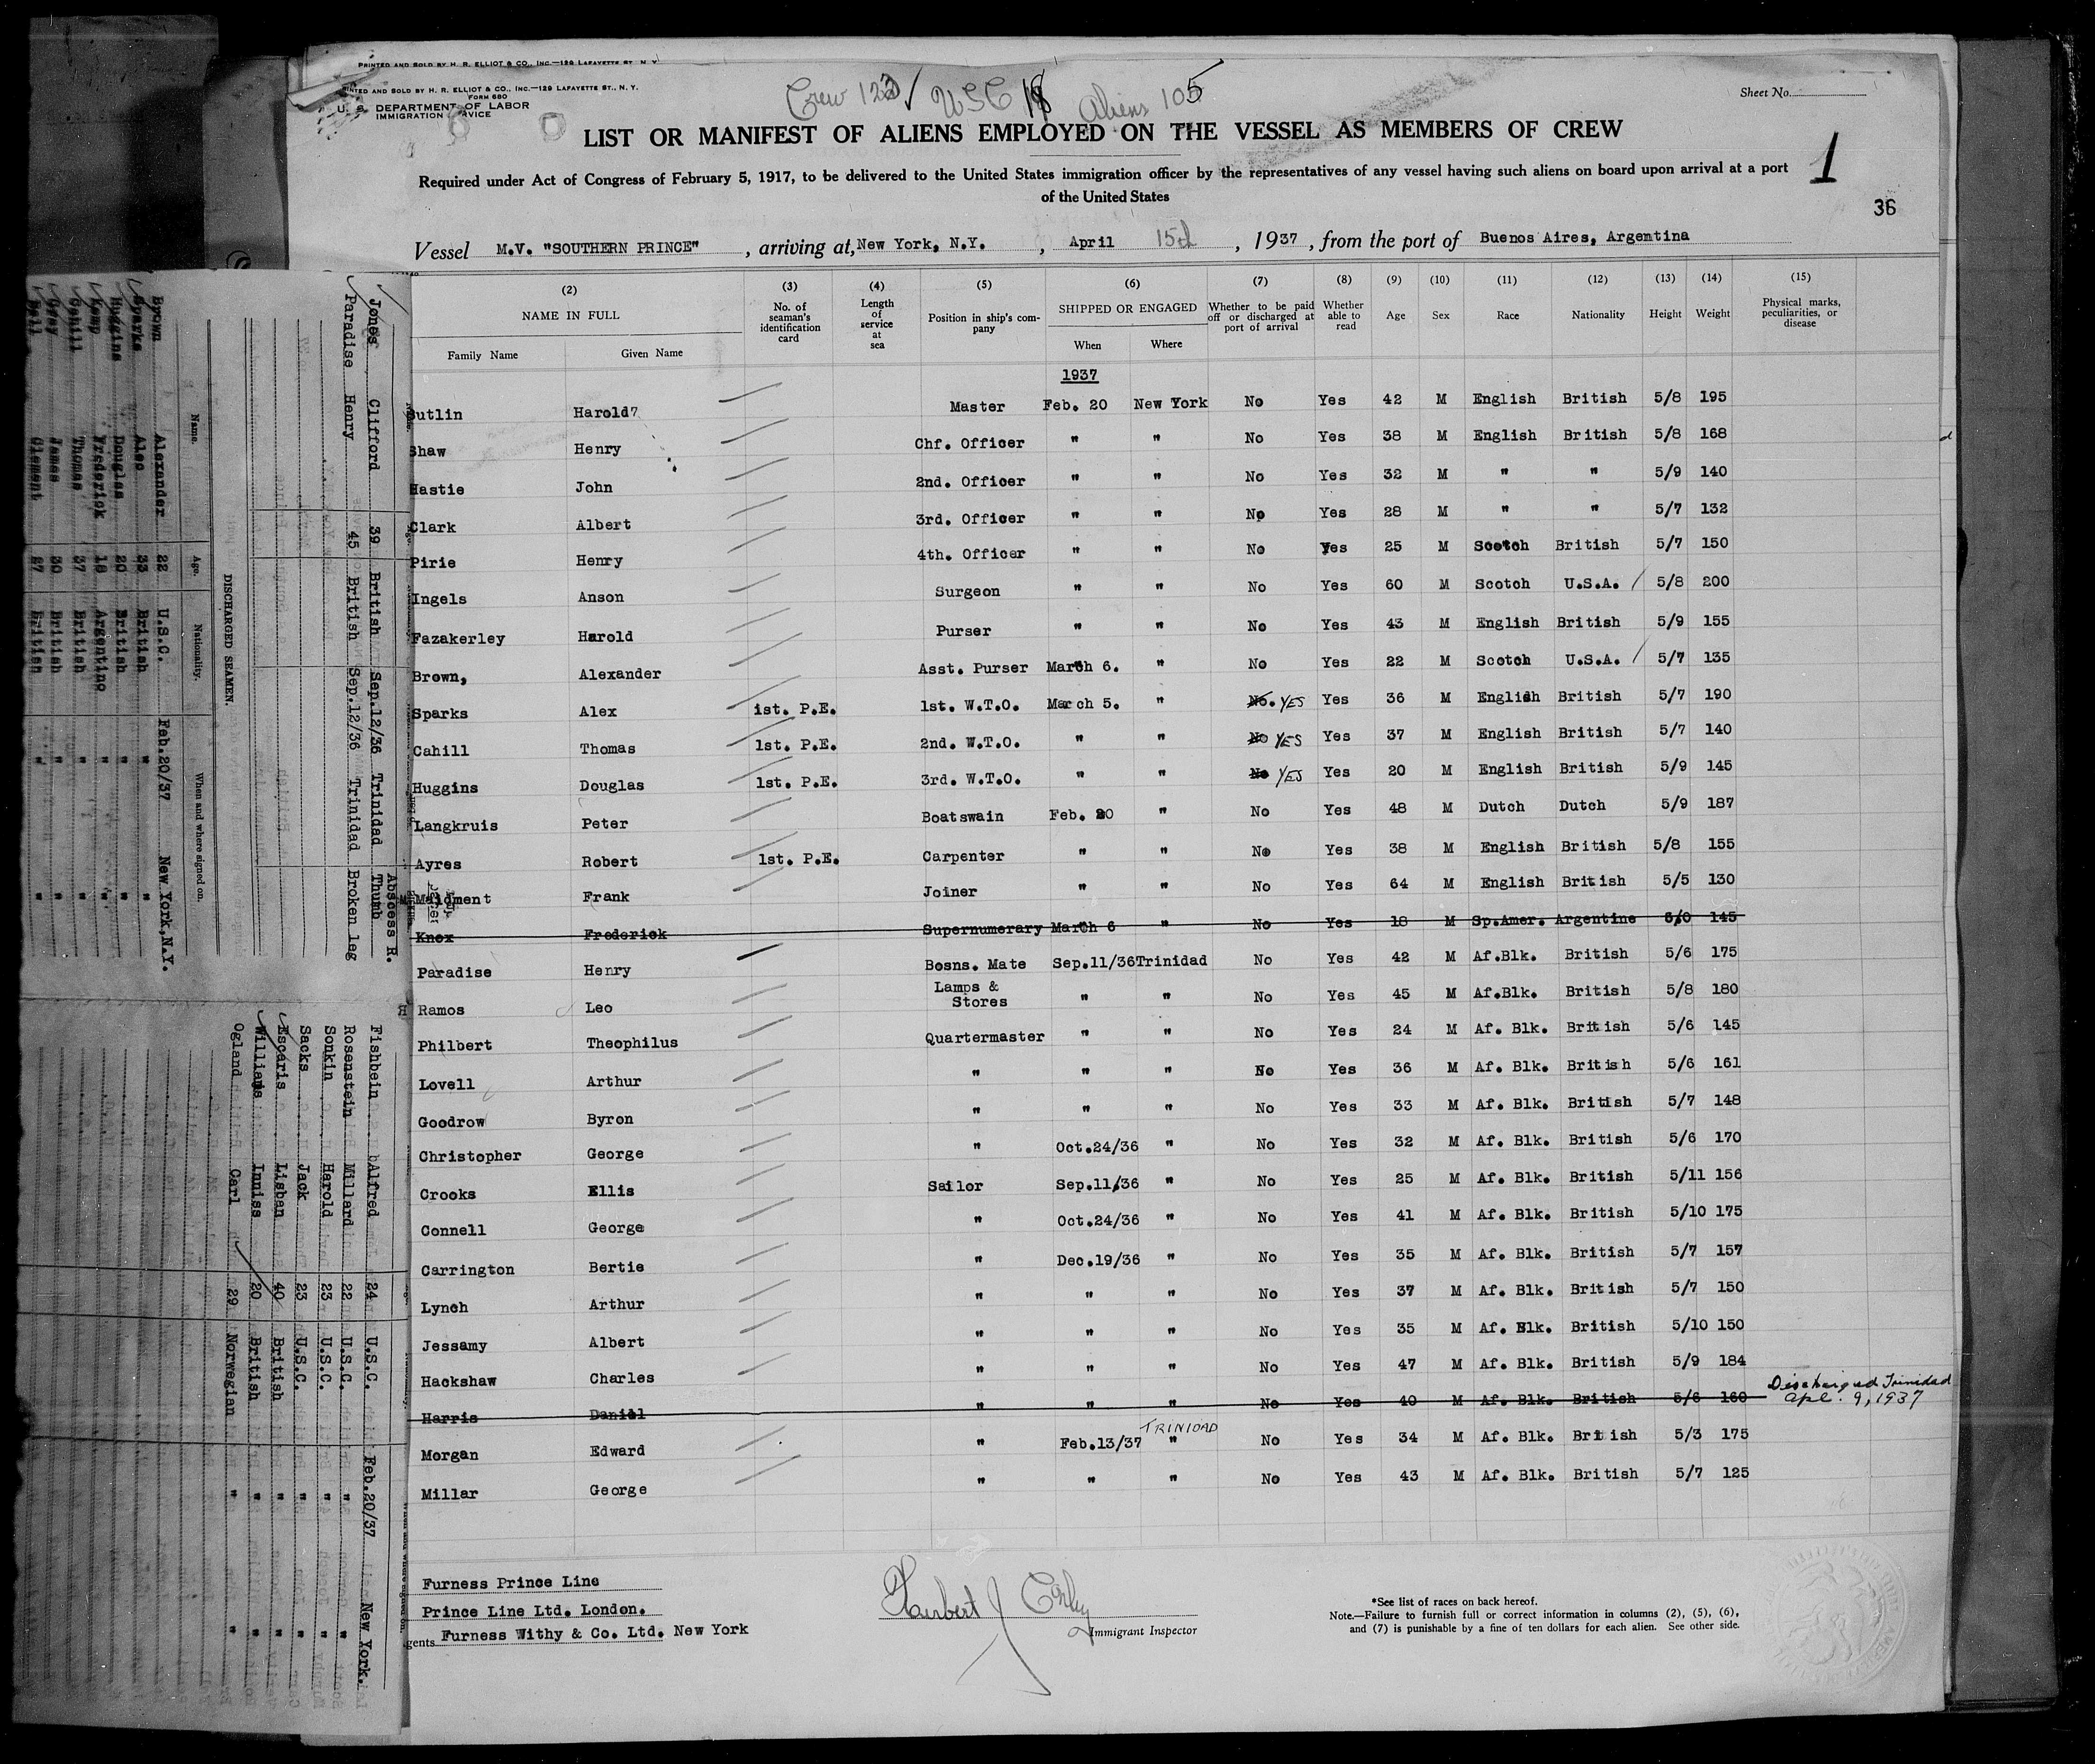 PRINTED AND SOLD BY H. R. ELLIOT & CO., INC.—129 LAFAYETTE ST. N. Y.
PRINTED AND SOLD BY H. R. ELLIOT & CO., INC.—129 LAFAYETTE ST., N. Y.
FORM 680
U. S. DEPARTMENT OF LABOR
IMMIGRATION SERVICE
Crew 123 USC 18 Aliens 105
Sheet No.
LIST OR MANIFEST OF ALIENS EMPLOYED ON THE VESSEL AS MEMBERS OF CREW
1
Required under Act of Congress of February 5, 1917, to be delivered to the United States immigration officer by the representatives of any vessel having such aliens on board upon arrival at a port
of the United States
36
Vessel M.V. "SOUTHERN PRINCE", arriving at, New York, N.Y., April 15th, 1937, from the port of Buenos Aires, Argentina
(2) (3) (4) (5) (6) (7) (8) (9) (10) (11) (12) (13) (14) (15)
NAME IN FULL No. of seaman's identification card Length of service at sea Position in ship's company SHIPPED OR ENGAGED Whether to be paid off or discharged at port of arrival Whether able to read Age Sex Race Nationality Height Weight Physical marks, peculiarities, or disease
Family Name Given Name When Where
1937
Sutlin Harold7 Master Feb. 20 New York No Yes 42 M English British 5/8 195
Shaw Henry Chf. Officer " " No Yes 38 M English British 5/8 168
Hastie John 2nd. Officer " " No Yes 32 M " " 5/9 140
Clark Albert 3rd. Officer " " No Yes 28 M " " 5/7 132
Pirie Henry 4th. Officer " " No Yes 25 M Scotch British 5/7 150
Ingels Anson Surgeon " " No Yes 60 M Scotch U.S.A. 5/8 200
Fazakerley Harold Purser " " No Yes 43 M English British 5/9 155
Brown, Alexander Asst. Purser March 6. " No Yes 22 M Scotch U.S.A. 5/7 135
Sparks Alex 1st. P.E. 1st. W.T.O. March 5. " No. YES Yes 36 M English British 5/7 190
Cahill Thomas 1st. P.E. 2nd. W.T.O. " " No YES Yes 37 M English British 5/7 140
Huggins Douglas 1st. P.E. 3rd. W.T.O. " " No YES Yes 20 M English British 5/9 145
Langkruis Peter Boatswain Feb. 20 " No Yes 48 M Dutch Dutch 5/9 187
Ayres Robert 1st. P.E. Carpenter " " No Yes 38 M English British 5/8 155
Maidment Frank Joiner " " No Yes 64 M English British 5/5 130
Knox Frederick Supernumerary March 6 " No Yes 18 M Sp.Amer. Argentine 6/0 145
Paradise Henry Bosns. Mate Sep.11/36 Trinidad No Yes 42 M Af.Blk. British 5/6 175
Ramos Leo Lamps & Stores " " No Yes 45 M Af.Blk. British 5/8 180
Philbert Theophilus Quartermaster " " No Yes 24 M Af. Blk. British 5/6 145
Lovell Arthur " " " No Yes 36 M Af. Blk. British 5/6 161
Goodrow Byron " " " No Yes 33 M Af. Blk. British 5/7 148
Christopher George " Oct.24/36 " No Yes 32 M Af. Blk. British 5/6 170
Crooks Ellis Sailor Sep.11/36 " No Yes 25 M Af. Blk. British 5/11 156
Connell George " Oct.24/36 " No Yes 41 M Af. Blk. British 5/10 175
Carrington Bertie " Dec.19/36 " No Yes 35 M Af. Blk. British 5/7 157
Lynch Arthur " " " No Yes 37 M Af. Blk. British 5/7 150
Jessamy Albert " " " No Yes 35 M Af. Blk. British 5/10 150
Hackshaw Charles " " " No Yes 47 M Af. Blk. British 5/9 184
Harris Daniel " " " No Yes 40 M Af. Blk. British 5/6 160 Discharged Trinidad Apl. 9, 1937
Morgan Edward " Feb.13/37 TRINIDAD " No Yes 34 M Af. Blk. British 5/3 175
Millar George " " " No Yes 43 M Af. Blk. British 5/7 125
Furness Prince Line
Prince Line Ltd. London.
gents Furness Withy & Co. Ltd. New York
Herbert J Corley
Immigrant Inspector
*See list of races on back hereof.
Note.—Failure to furnish full or correct information in columns (2), (5), (6),
and (7) is punishable by a fine of ten dollars for each alien. See other side.
Jones Clifford 39 British Sep.12/36 Trinidad Abscess R. Thumb
Paradise Henry 45 British Sep.12/36 Trinidad Broken leg
DISCHARGED SEAMEN.
Name. Age. Nationality. When and where signed on.
Brown Alexander 22 U.S.C. Feb.20/37 New York,N.Y.
Sparks Alec 33 British " "
Huggins Douglas 20 British " "
Kemp Frederick 18 Argentino " "
Cahill Thomas 37 British " "
Gray James 30 British " "
Bell Clement 27 British " "
Fishbein Alfred 24 U.S.C. Feb.20/37 New York.
Rosenstein Millard 22 U.S.C. " "
Sonkin Harold 23 U.S.C. " "
Sacks Jack 23 U.S.C. " "
Escaris Lisban 40 British " "
Williams Inniss 20 British " "
Ogland Carl 29 Norwegian " "